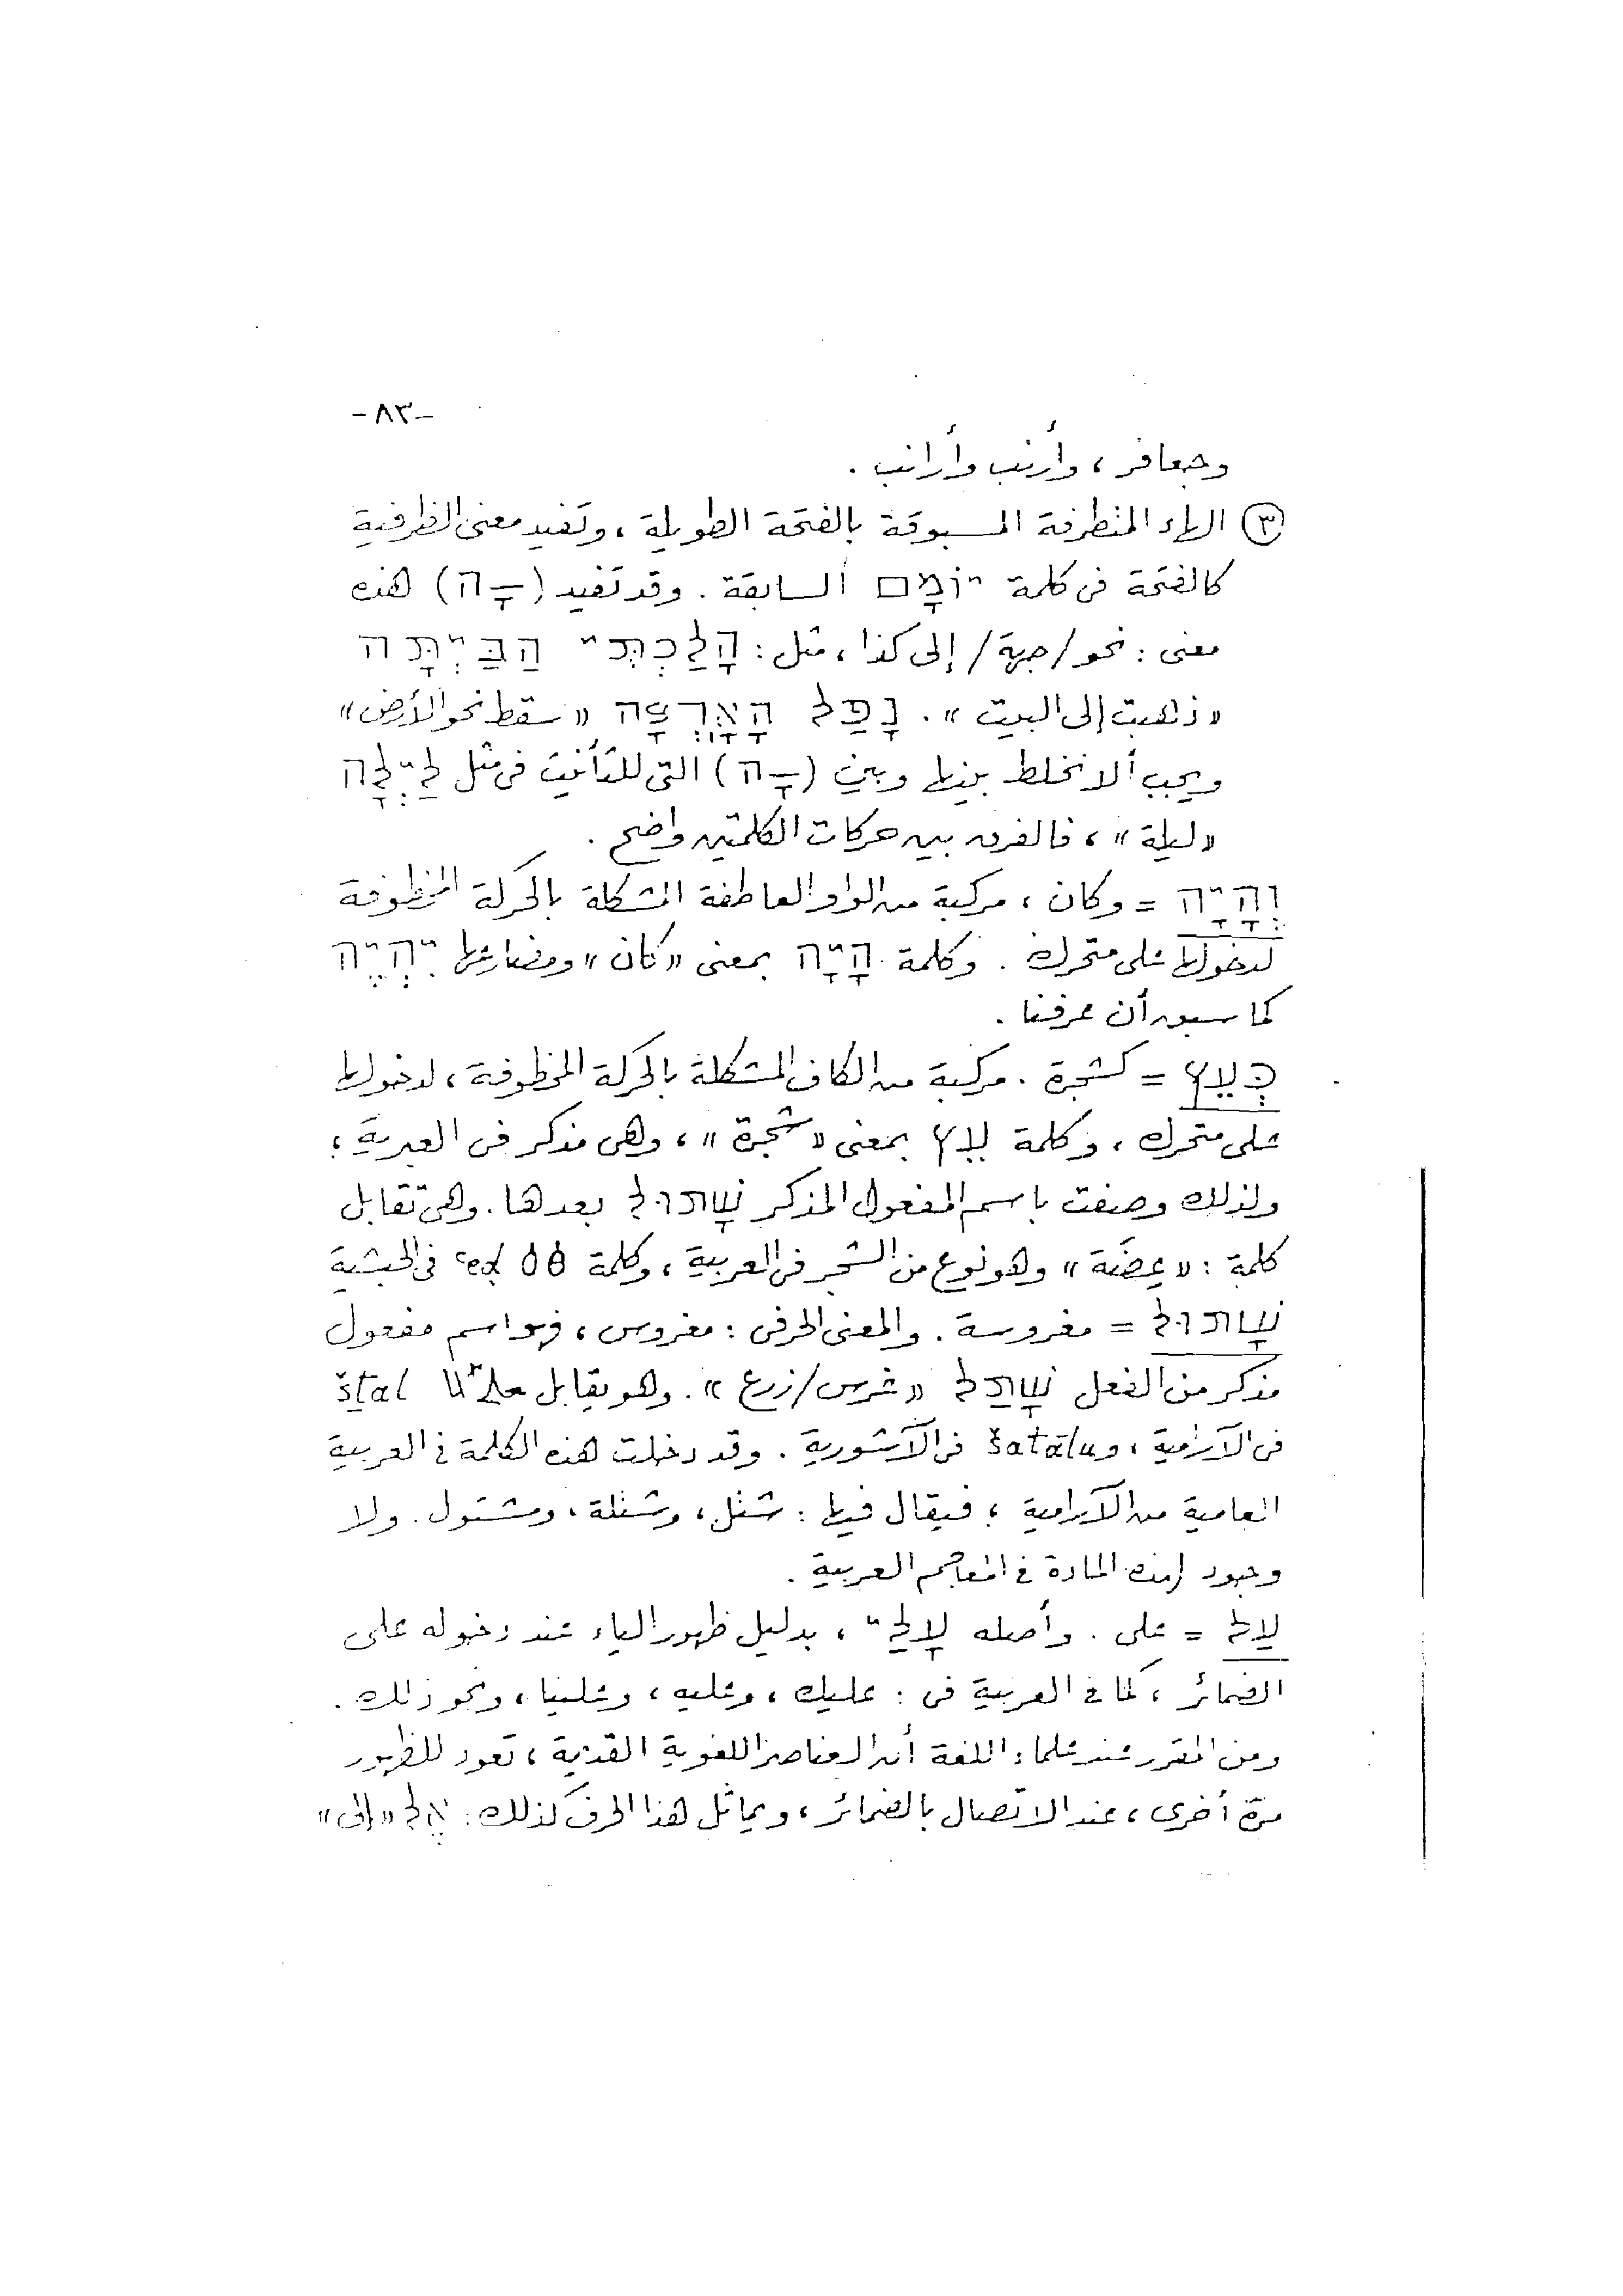 -٨٣-
وجعافر، وأرنب وأرانب.
(٣) الهاء المتطرفة المسبوقة بالفتحة الطويلة، وتفيد معنى الظرفية
كالفتحة فى كلمة יוֹמָם السابقة. وقد تفيد (ָה) هذه
معنى: نحو/جهة/إلى كذا، مثل: הָלַכְתִּי הַבַּיְתָּה
«ذهبت إلى البيت». נָפַל הָאָרְצָה «سقط نحو الأرض»
ويجب ألا نخلط بينها وبين (ָה) التى للتأنيث فى مثل לַיְלָה
«ليلة»، فالفرق بين حركات الكلمتين واضح.
וְהָיָה = وكان، مركبة من الواو العاطفة المشكلة بالحركة المخطوفة
لدخولها على متحرك. وكلمة הָיָה بمعنى «كان» ومضارعها יִהְיֶה
كما سبق أن عرفنا.
כְּעֵץ = كشجرة. مركبة من الكاف المشكلة بالحركة المخطوفة، لدخولها
على متحرك، وكلمة עֵץ بمعنى «شجرة»، وهى مذكر فى العبرية؛
ولذلك وصفت باسم المفعول المذكر שָׁתוּל بعدها. وهى تقابل
كلمة: «عِضَة» وهو نوع من الشجر فى العربية، وكلمة ዕፅ ʿeḍ فى الحبشية
שָׁתוּל = مغروسة. والمعنى الحرفى: مغروس، فهو اسم مفعول
مذكر من الفعل שָׁתַל «غرس/زرع». وهو يقابل ܫܬܠ šṯal
فى الآرامية، و šatālu فى الآشورية. وقد دخلت هذه الكلمة فى العربية
العامية من الآرامية؛ فيقال فيها: شتل، وشتلة، ومشتول. ولا
وجود لهذه المادة فى المعاجم العربية.
עַל = على. وأصله עָלַי، بدليل ظهور الياء عند دخوله على
الضمائر، كما فى العربية فى: عليك، وعليه، وعلينا، ونحو ذلك.
ومن المقرر عند علماء اللغة أن العناصر اللغوية القديمة، تعود للظهور
مرة أخرى، عند الاتصال بالضمائر، ويماثل هذا الحرف كذلك: אֶל «إلى»